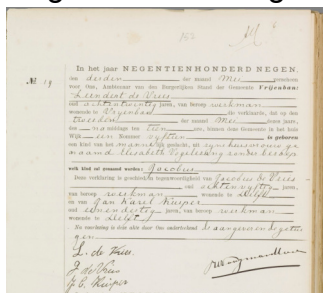 In het jaar NEGENTIENHONDERD NEGEN,
den derden der maand Mei verscheen
voor Ons, Ambtenaar van den Burgerlijken Stand der Gemeente Vrijenban:
Leendert de Vries
oud achtentwintig jaren, van beroep werkman
wonende te Vrijenban die verklaarde, dat op den
tweeden der maand Mei dezes jaars,
des middags te tien ure, binnen deze Gemeente in het huis
Wijk Nommer vijftien is geboren
een kind van het mannelijk geslacht, uit zijne huisvrouw ge
naamd Elisabeth Vogelesang zonder beroep
welk kind zal genaamd worden: Jacobus
Deze verklaring is geschied in tegenwoordigheid van Jacobus de Vries
oud achtenvijftig jaren,
van beroep werkman wonende te Delft
en van Jan Karel Kuiper
oud jaren, van beroep werkman
wonende te Delft
Na voorlezing is deze akte door Ons onderteekend de aangever en de getui
gen.
L. de Vries.
J de Vries
J C. Kuiper
№ 19